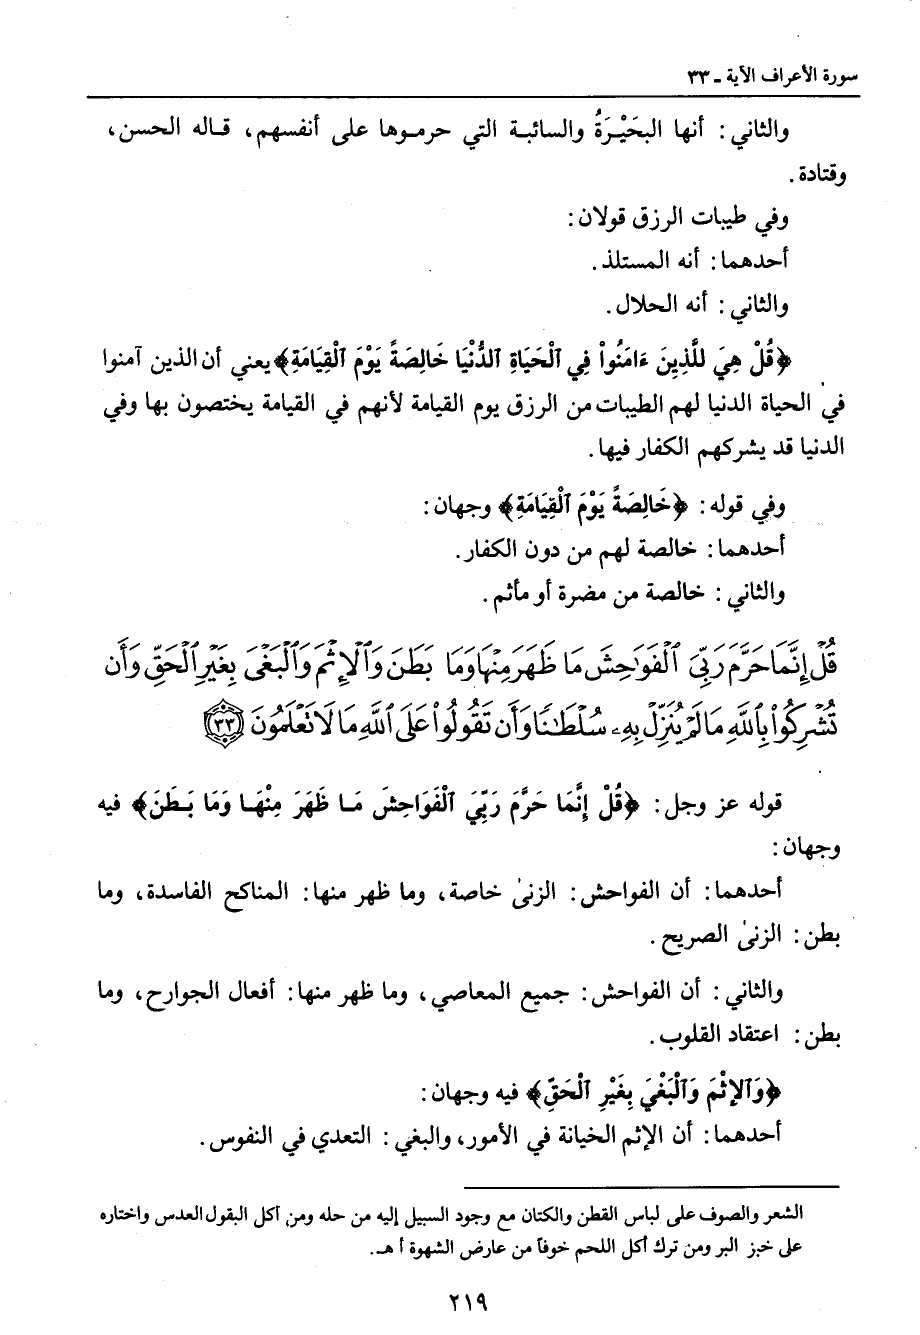 سورة الأعراف الآية ـ ٣٣
والثاني: أنها البَحَيْرَةُ والسائبة التي حرموها على أنفسهم، قاله الحسن،
وقتادة.
وفي طيبات الرزق قولان:
أحدهما: أنه المستلذ.
والثاني: أنه الحلال.
﴿قُلْ هِيَ للَّذِينَ ءَامَنُواْ فِي ٱلْحَيَاةِ ٱلدُّنْيَا خَالِصَةً يَوْمَ ٱلْقِيَامَةِ﴾ يعني أن الذين آمنوا
في الحياة الدنيا لهم الطيبات من الرزق يوم القيامة لأنهم في القيامة يختصون بها وفي
الدنيا قد يشركهم الكفار فيها.
وفي قوله: ﴿خَالِصَةً يَوْمَ ٱلْقِيَامَةِ﴾ وجهان:
أحدهما: خالصة لهم من دون الكفار.
والثاني: خالصة من مضرة أو مأثم.
قُلْ إِنَّمَا حَرَّمَ رَبِّيَ ٱلْفَوَٰحِشَ مَا ظَهَرَ مِنْهَا وَمَا بَطَنَ وَٱلْإِثْمَ وَٱلْبَغْىَ بِغَيْرِ ٱلْحَقِّ وَأَن
تُشْرِكُواْ بِٱللَّهِ مَا لَمْ يُنَزِّلْ بِهِۦ سُلْطَٰنًا وَأَن تَقُولُواْ عَلَى ٱللَّهِ مَا لَا تَعْلَمُونَ ٣٣
قوله عز وجل: ﴿قُلْ إِنَّمَا حَرَّمَ رَبِّيَ ٱلْفَوَاحِشَ مَا ظَهَرَ مِنْهَا وَمَا بَطَنَ﴾ فيه
وجهان:
أحدهما: أن الفواحش: الزنىٰ خاصة، وما ظهر منها: المناكح الفاسدة، وما
بطن: الزنىٰ الصريح.
والثاني: أن الفواحش: جميع المعاصي، وما ظهر منها: أفعال الجوارح، وما
بطن: اعتقاد القلوب.
﴿وَٱلإِثْمَ وَٱلْبَغْيَ بِغَيْرِ ٱلْحَقِّ﴾ فيه وجهان:
أحدهما: أن الإثم الخيانة في الأمور، والبغي: التعدي في النفوس.
الشعر والصوف على لباس القطن والكتان مع وجود السبيل إليه من حله ومن أكل البقول العدس واختاره
على خبز البر ومن ترك أكل اللحم خوفاً من عارض الشهوة أ هـ.
٢١٩